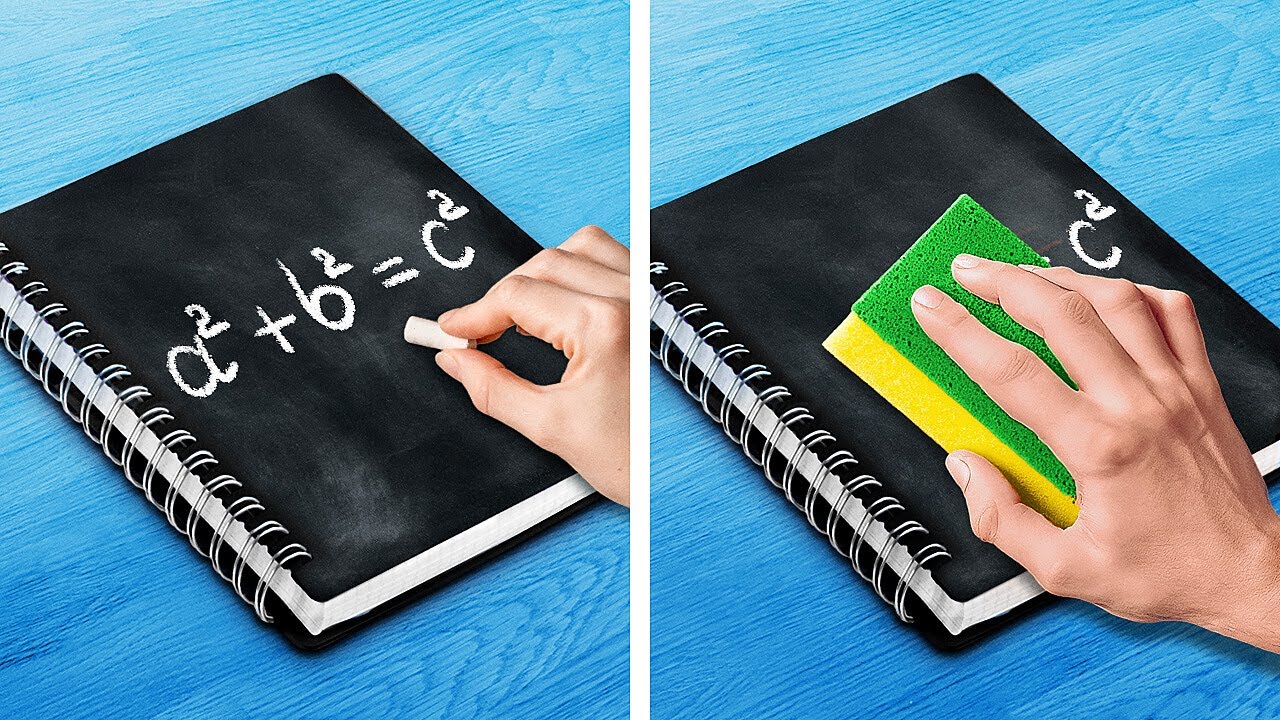 a² + b² = c²
c²